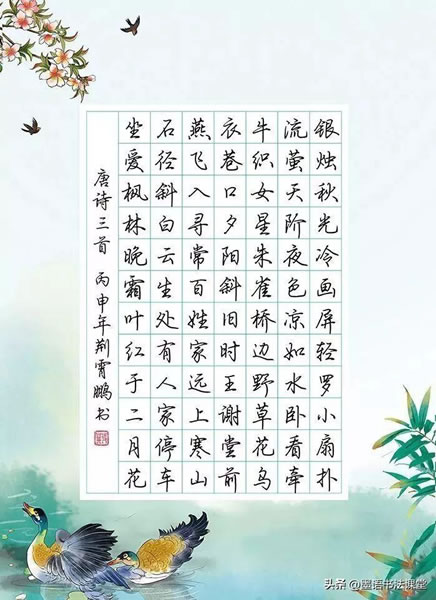 银烛秋光冷画屏轻罗小扇扑
流萤天阶夜色凉如水卧看牵
牛织女星朱雀桥边野草花乌
衣巷口夕阳斜旧时王谢堂前
燕飞入寻常百姓家远上寒山
石径斜白云生处有人家停车
坐爱枫林晚霜叶红于二月花
唐诗三首 丙申年荆霄鹏书
头条 @墨语书法课堂